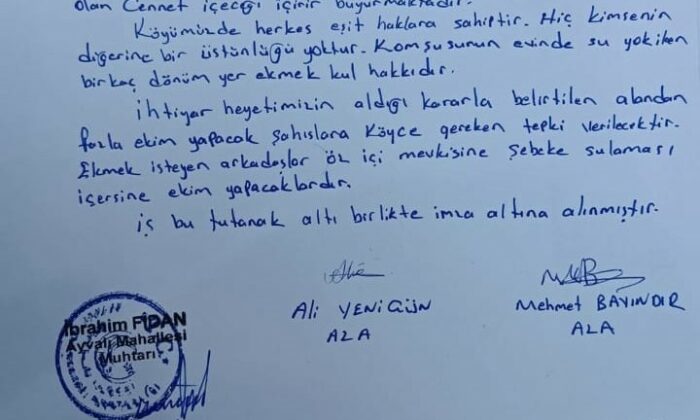 olan Cennet içeceği içirir buyurmaktadır.
Köyümüzde herkes eşit haklara sahiptir. Hiç kimsenin
diğerine bir üstünlüğü yoktur. Komşusunun evinde su yokiken
birkaç dönüm yer ekmek kul hakkıdır.
İhtiyar heyetimizin aldığı kararla belirtilen alandan
fazla ekim yapacak şahıslara Köyce gereken tepki verilecektir.
Ekmek isteyen arkadaşlar öz içi mevkisine Şebeke sulaması
içersine ekim yapacaklardır.
iş bu tutanak altı birlikte imza altına alınmıştır.
Ali YENİGÜN
AZA
Mehmet BAYINDIR
AZA
İbrahim FİDAN
Ayvalı Mahallesi
Muhtarı